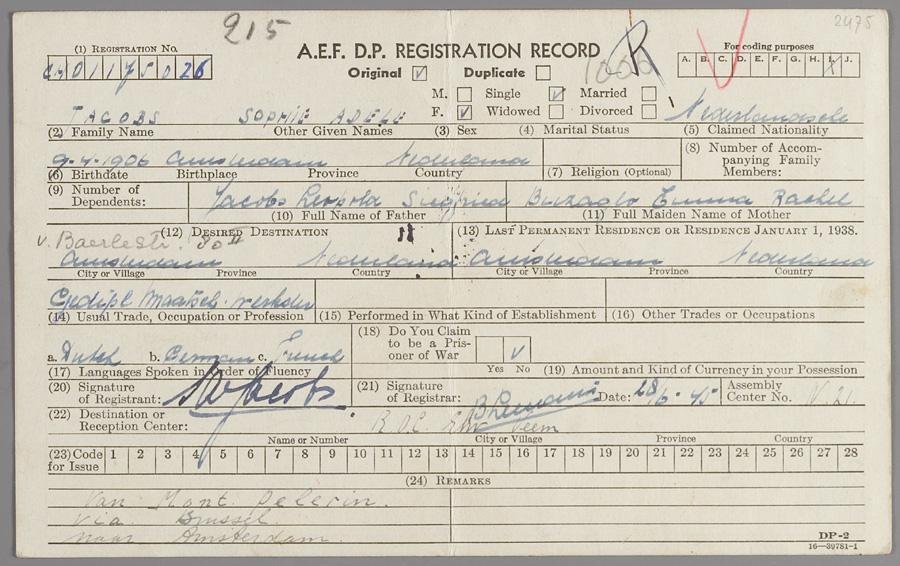 215
2475
(1) REGISTRATION No.
A.E.F. D.P. REGISTRATION RECORD
For coding purposes
Original ☑ Duplicate ☐
1000 R
A. B. C. D. E. F. G. H. I. J.
01175026
M. ☐ Single ☑ Married ☐
F. ☑ Widowed ☐ Divorced ☐
JACOBS SOPHIE ADELE Nederlandsche
(2) Family Name Other Given Names (3) Sex (4) Marital Status (5) Claimned Nationality
9-4-1906 Amsterdam Nederland
(6) Birthdate Birthplace Province Country (7) Religion (Optional)
(8) Number of Accompanying Family Members:
(9) Number of Dependents:
Jacobs Leopold Siegfried Emma Rachel
(10) Full Name of Father (11) Full Maiden Name of Mother
(12) DESIRED DESTINATION (13) LAST PERMANENT RESIDENCE OR RESIDENCE JANUARY 1, 1938.
v. Baerlestr. 80 II
Amsterdam Nederland Amsterdam Nederland
City or Village Province Country City or Village Province Country
Gedipl. Maatsch.
(14) Usual Trade, Occupation or Profession (15) Performed in What Kind of Establishment (16) Other Trades or Occupations
a. Dutch b. German c. French
(17) Languages Spoken in Order of Fluency
(18) Do You Claim to be a Prisoner of War
v
Yes No
(19) Amount and Kind of Currency in your Possession
(20) Signature of Registrant: Jacobs
(21) Signature of Registrar:
Date: 28/6-45
Assembly Center No. V. 21.
(22) Destination or Reception Center:
Name or Number City or Village Province Country
(23) Code for Issue 1 2 3 4 5 6 7 8 9 10 11 12 13 14 15 16 17 18 19 20 21 22 23 24 25 26 27 28
(24) REMARKS
Van Mont Pelerin.
via Brussel.
naar Amsterdam.
DP-2
16—39781-1